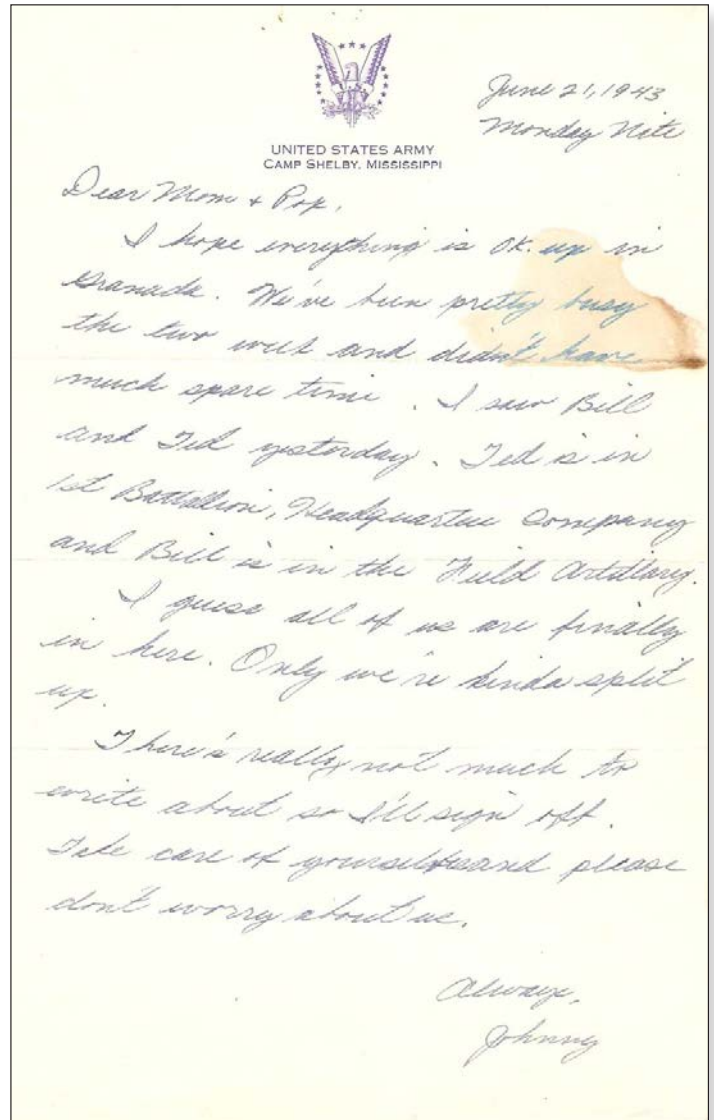 June 21, 1943
Monday Nite
UNITED STATES ARMY
CAMP SHELBY, MISSISSIPPI
Dear Mom + Pop,
I hope everything is OK. up in
Granada. We've been pretty busy
the two week and didn't have
much spare time. I saw Bill
and Ted yesterday. Ted is in
1st Battallion, Headquarter Company
and Bill is in the Field Artillary.
I guess all of us are finally
in here. Only we're kinda split
up.
There's really not much to
write about so I'll sign off.
Take care of yourselves and please
don't worry about us.
Always,
Johnny